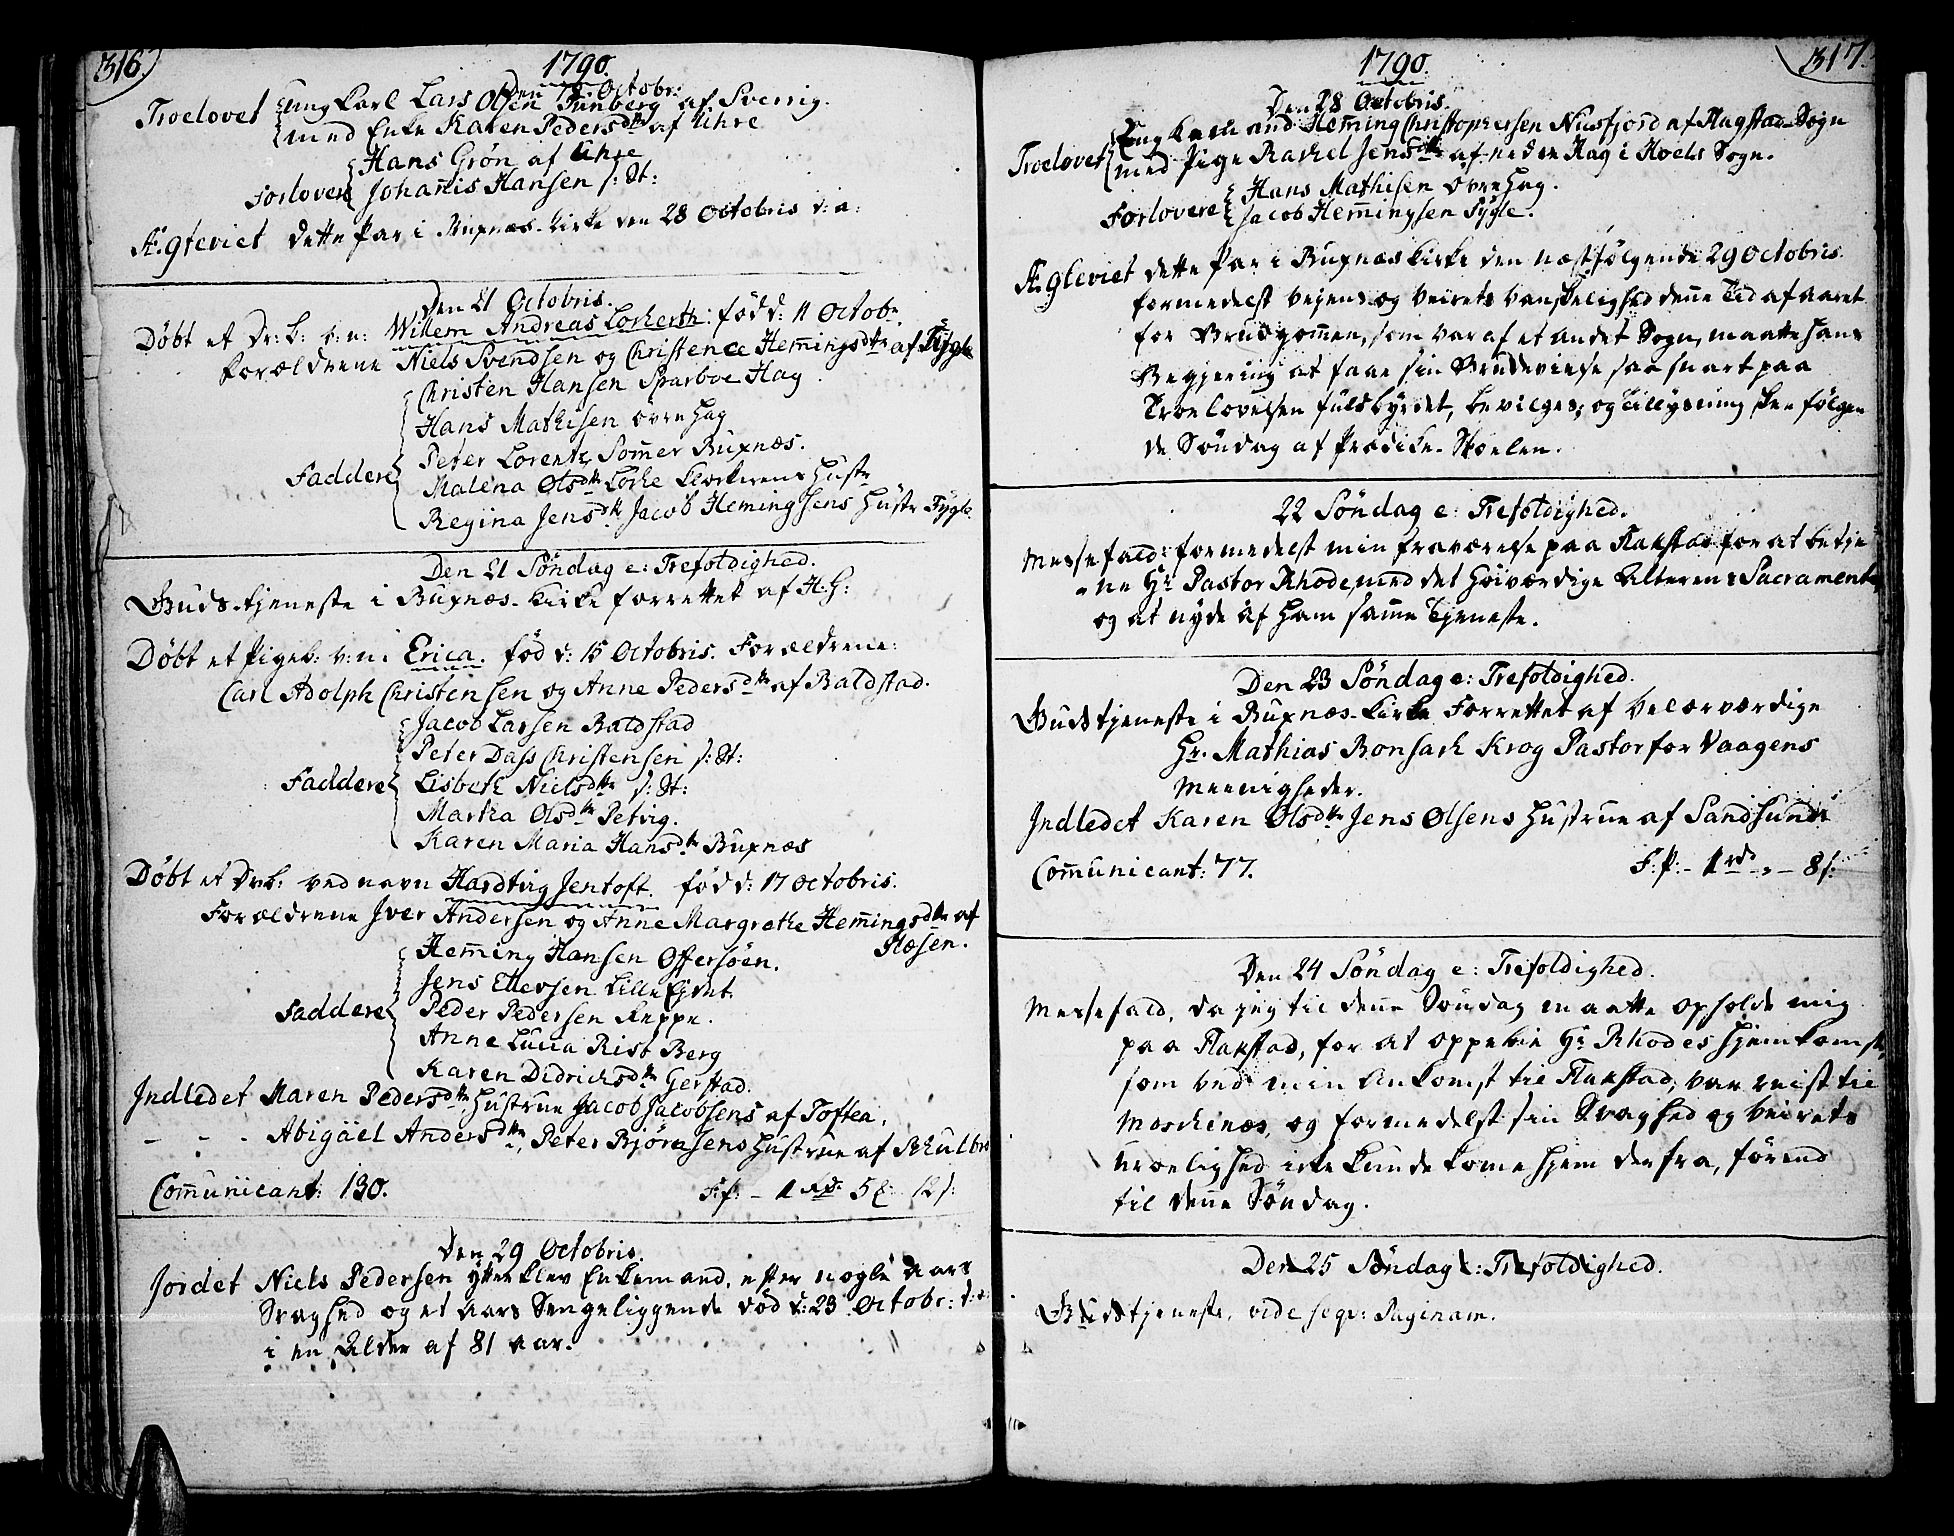 316.
1790.
Den Octobr:
Troelovet Ung Karl Lars Olsen Tunberg af Sverrig.
med Enke Karen Pedersdtr af Uhre
Hans Grøn af Uhre
Forlovere Johannis Hansen s: St:
Ægteviet dette Par i Buxnæs-Kirke den 28 Octobris s: a:
Den 21 Octobris.
Døbt et Dr: b: v: n: Willem Andreas Lorkerth: fød d: 11 Octobr.
Forældrene Niels Svendsen og Christence Hemingsdtr af Tygle
Christen Hansen Sparboe Hag
Hans Mathisen øvre Hag
Peter Lorentz Sommer Buxnæs.
Faddere Malena Olsdtr Lorke Klokkerens Hustr
Regina Jensdtr Jacob Hemingsens Hustr Tygle
Den 21 Søndag e: Trefoldighed.
Guds-tjeneste i Buxnæs-Kirke forrettet af H. H:
Døbt et Pigeb: v: n: Erica. fød d: 15 Octobris. Forældrene:
Carl Adolph Christensen og Anne Pedersdtr af Baldstad.
Jacob Larsen Baldstad
Peter Dass Christensen s: St:
Faddere Lisbeth Nielsdtr s: St:
Martha Olsdtr Petvig.
Karen Maria Hansdtr Buxnæs
Døbt et Drb: ved navn Hardtvig Jentoft. fød d: 17 Octobris.
Forældrene Iver Andersen og Anne Margrethe Hemingsdtr af
Stæsen.
Hemming Hansen Offersøen.
Jens Ellevsen Lille Eidet
Faddere Peder Pedersen Reppe.
Anne Lucia Rist Berg
Karen Didrichsdtr Gerstad.
Indledet Maren Pedersdtr Hustrue Jacob Jacobsens af Toften.
- - - Abigäel Andersdtr, Peter Bjørnsens Hustrue af Skulbr
Communicant: 130.
F: f: - 1 rdr 5 ʒ: 12 s:
Den 29 Octobris.
Jordet Niels Pedersen ytter klev Enkemand, efter nogle Aars
Svaghed og et Aars Sengeliggende død d: 23 Octobr: s: a:
i en Alder af 81 aar.
317.
1790.
Den 28 Octobris.
Ung Karl Hemming Christophersen Nusfjord af Flagstad-Sogn
Troelovet med Pige Rachel Jensdtr af neden Hag i Hoels Sogn.
Hans Mathisen øvre Hag.
Forlovere Jacob Hemmingsen Tygle.
Ægteviet dette Par i Buxnæs Kirke den næstfølgende 29 Octobris.
formedelst Vejens og Veirets vanskelighed denne Tid af aaret
for Brudgommen, som var af et andet Sogn, maatte hans
Begjering at faae sin Brudevielse saa snart paa
Troelovelsen fuldbyrdet, bevilges, og Tillysning skee følgen
de Søndag af Prædike-Stoelen.
22 Søndag e: Trefoldighed.
Messefald: formedelst min fraværelse paa Flakstad for at betje
ne Hr Pastor Rhode, med det høiværdige Alterens Sacramente
og at nyde af ham samme Tjeneste.
Den 23 Søndag e: Trefoldighed.
Gudstjeneste i Buxnæs-Kirke Forrettet af Velærværdige
Hr. Mathias Bonsach Krog Pastor for Vaagens
Meenigheder.
Indledet Karen Olsdtr Jens Olsens Hustrue af Sandsund
Communicant: 77.
F: f: - 1 rdr - „ - 8 s:
Den 24 Søndag e: Trefoldighed.
Messefald, da jeg til denne Søndag maatte opholde mig
paa Flakstad, for at oppebie Hr Rhodes Hjemkomst,
som ved min Ankomst til Flakstad, var reist til
Moschenæs, og formedelst sin Svaghed og Veirets
uroelighed ikke kunde komme hjem derfra, førend
til denne Søndag.
Den 25 Søndag e: Trefoldighed.
Gudstjeneste, vide seqv: Paginam.